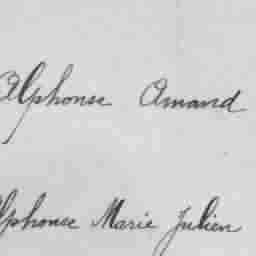 Alphonse Amand
Alphonse Marie Julien